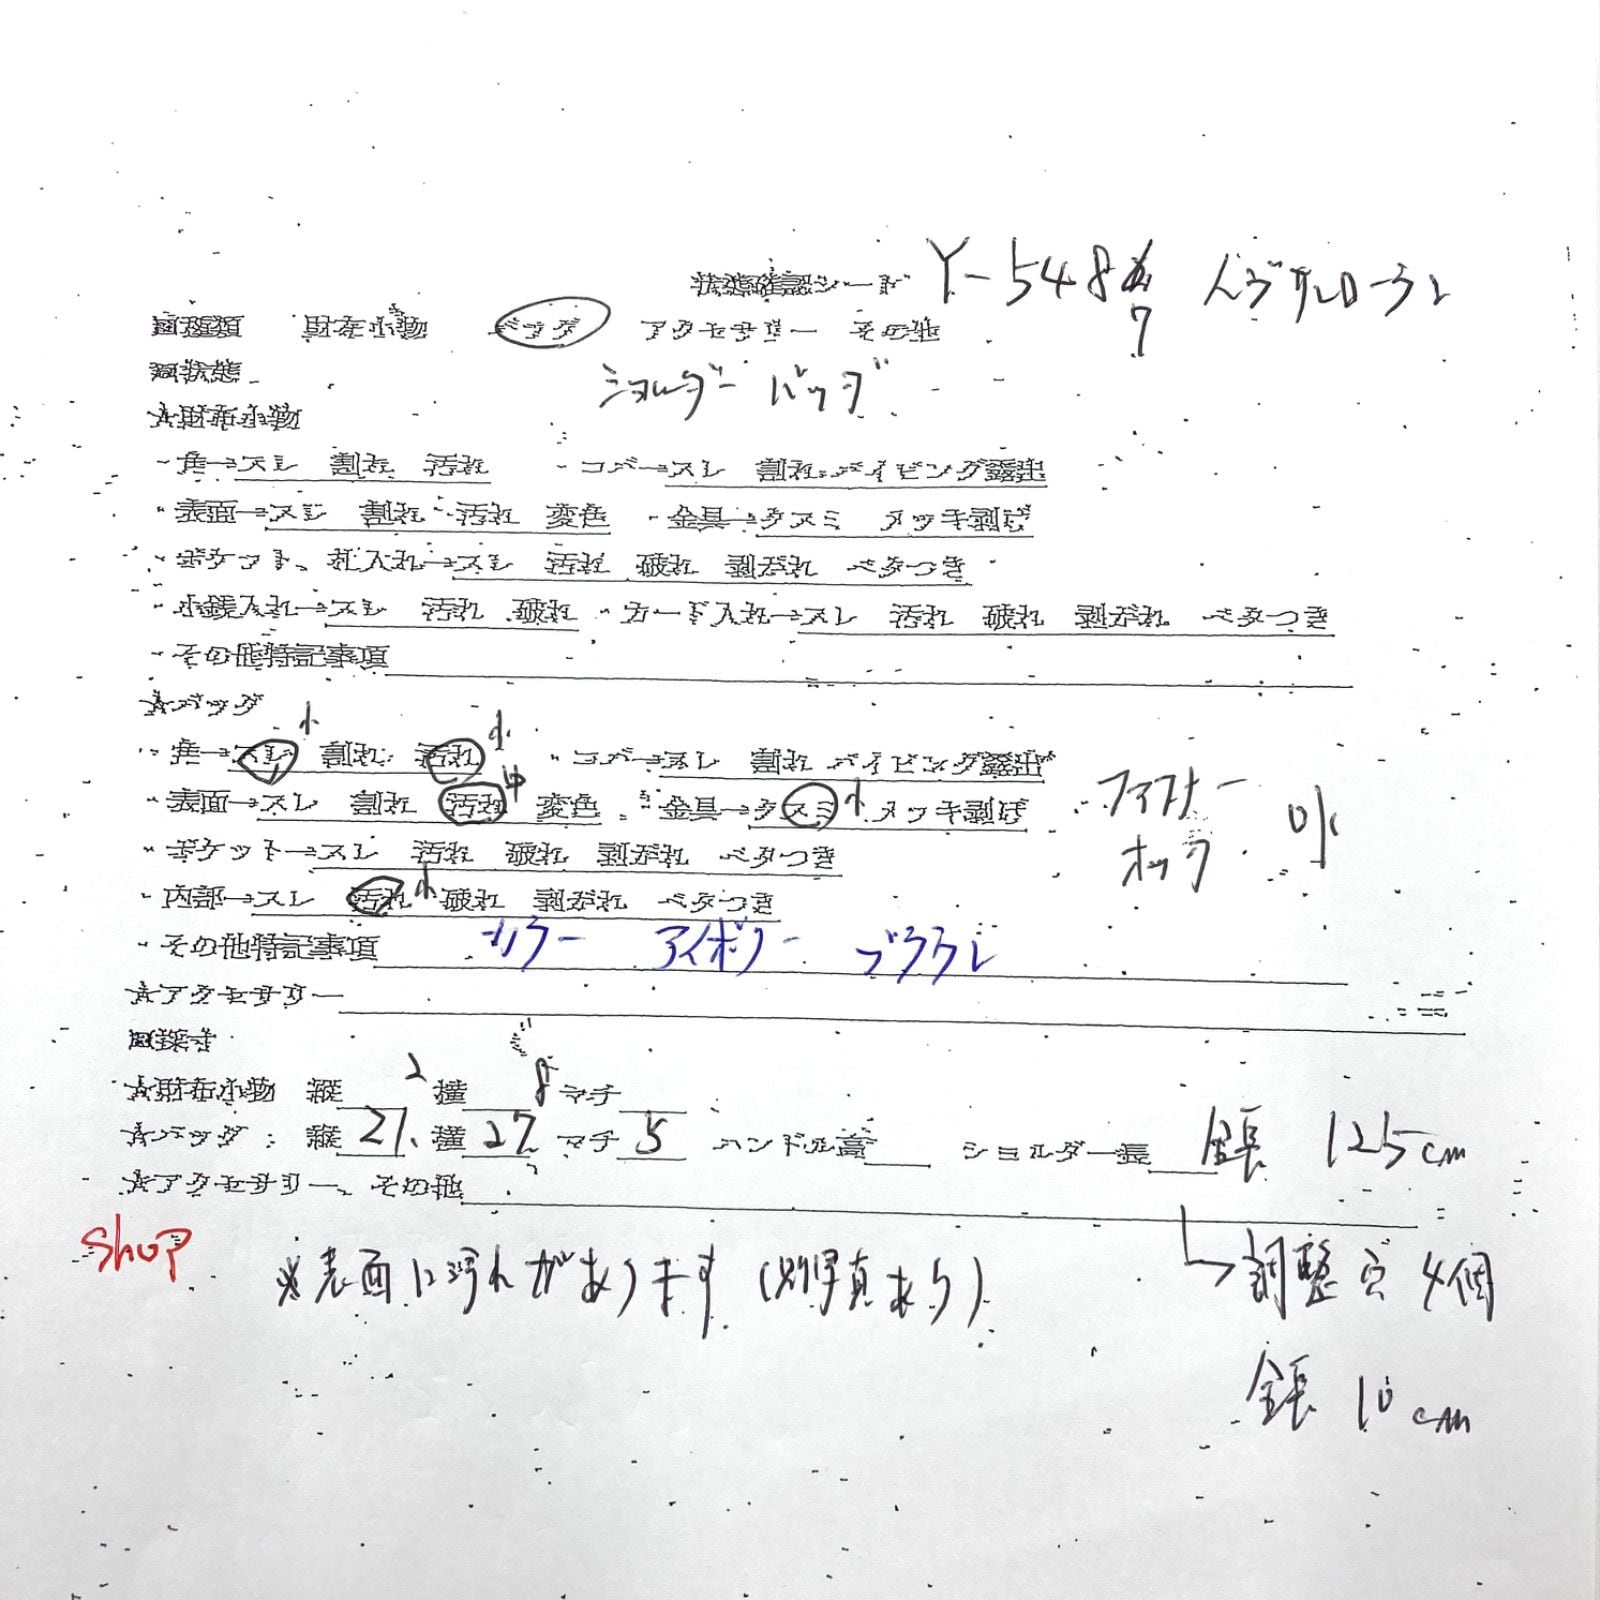 状態確認シート Y-5487 イヴサンローラン
□種類 財布小物 バッグ アクセサリー その他
□状態
ショルダーバッグ
☆財布小物
・角→スレ 割れ 汚れ ・コバ→スレ 割れ パイピング露出
・表面→スレ 割れ 汚れ 変色 ・金具→クスミ メッキ剥げ
・ポケット、札入れ→スレ 汚れ 破れ 剥がれ ベタつき
・小銭入れ→スレ 汚れ 破れ ・カード入れ→スレ 汚れ 破れ 剥がれ ベタつき
・その他特記事項
☆バッグ
・角→スレ 小 割れ 汚れ 小 ・コバ→スレ 割れ パイピング露出
・表面→スレ 割れ 汚れ 中 変色 ・金具→クスミ 小 メッキ剥げ
ファスナー
ホック
・ポケット→スレ 汚れ 破れ 剥がれ ベタつき
・内部→スレ 汚れ 小 破れ 剥がれ ベタつき
・その他特記事項 カラー アイボリー ブラウン
☆アクセサリー
□採寸
☆財布小物 縦 横 マチ
☆バッグ 縦 21 横 27 マチ 5 ハンドル高 ショルダー長 全長 125cm
☆アクセサリー、その他
調整穴 4個
全長 10cm
SHOP
※表面に汚れがあります(別写真あり)